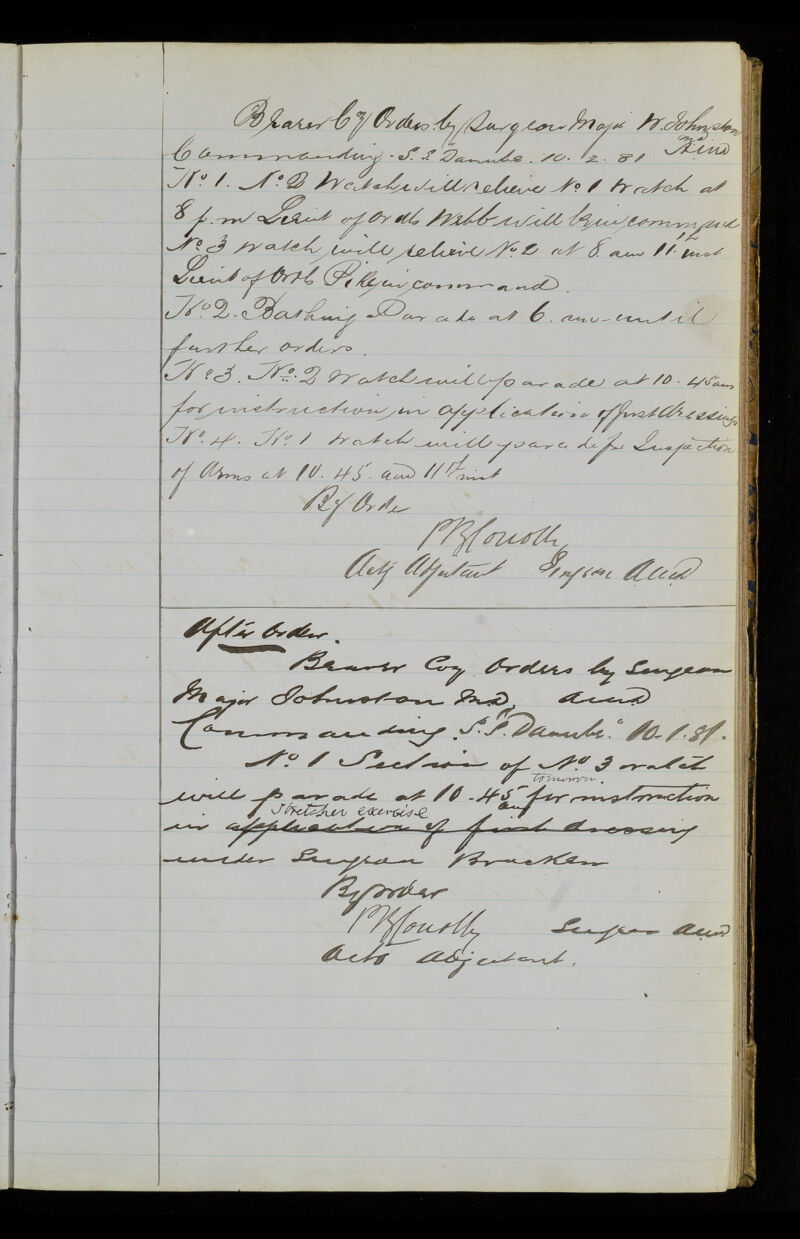 Bearer Coy Orders by Surgeon Major W. Johnston
MD AMD
Commanding. S.S. "Danube. 10. 2. 81
No. 1. No. 2 Watch will relieve No 1 Watch at
8 p.m Lieut of Ords Webb will be in command
No 3 watch will relieve No. 2 at 8 am 11th inst
Lieut of Ords Pike in command.
No 2. Bathing Parade at 6. am until
further orders.
No 3. No. 2 Watch will parade at 10. 45 am
for instruction in application of first dressings
No. 4. No. 1 Watch will parade for Inspection
of Arms at 10. 45. am 11th inst
By Order
Conolly
Actg Adjutant Surgeon AMD
After Order.
Bearer Coy Orders by Surgeon
Major Johnston MD. AMD
Commanding. S.S. "Danube." 10. 1. 81.
No. 1 Section of No. 3 watch
tomorrow.
will parade at 10. 45 am for instruction
Stretcher exercise
in application of first dressing
under Surgeon Bracken
By order
Conolly Surgeon AMD
Actg Adjutant.